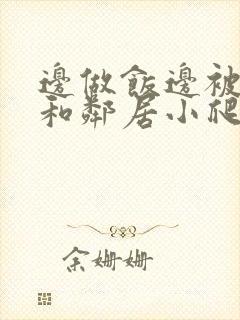 邊做飯邊被
和鄰居小爬
余姍姍